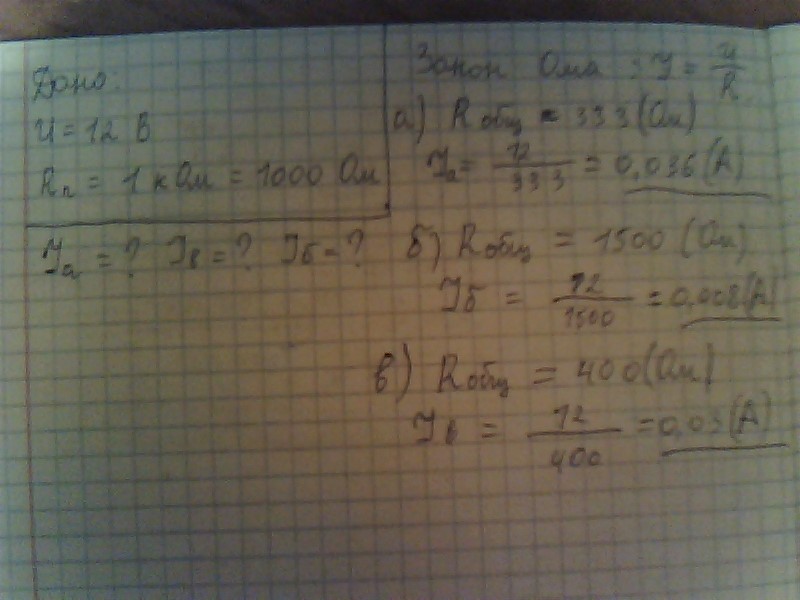 Дано:
U = 12 В
Rп = 1 кОм = 1000 Ом
Ia = ? Iв = ? Iб = ?
Закон Ома : I = U/R
а) Rобщ = 333 (Ом)
Ia = 12/333 = 0,036 (А)
б) Rобщ = 1500 (Ом)
Iб = 12/1500 = 0,008 (А)
в) Rобщ = 400 (Ом)
Iв = 12/400 = 0,03 (А)